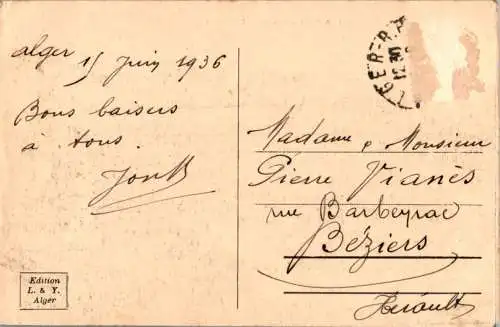 Alger 15 Juin 1936
Bons baisers
à tous.
Edition
L. & Y.
Alger
Madame & Monsieur
Pierre Vianès
rue Barbeyrac
Béziers
Hérault